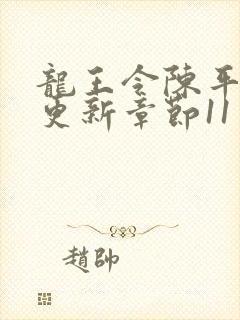 龍王令陳平
更新章節11
趙帥